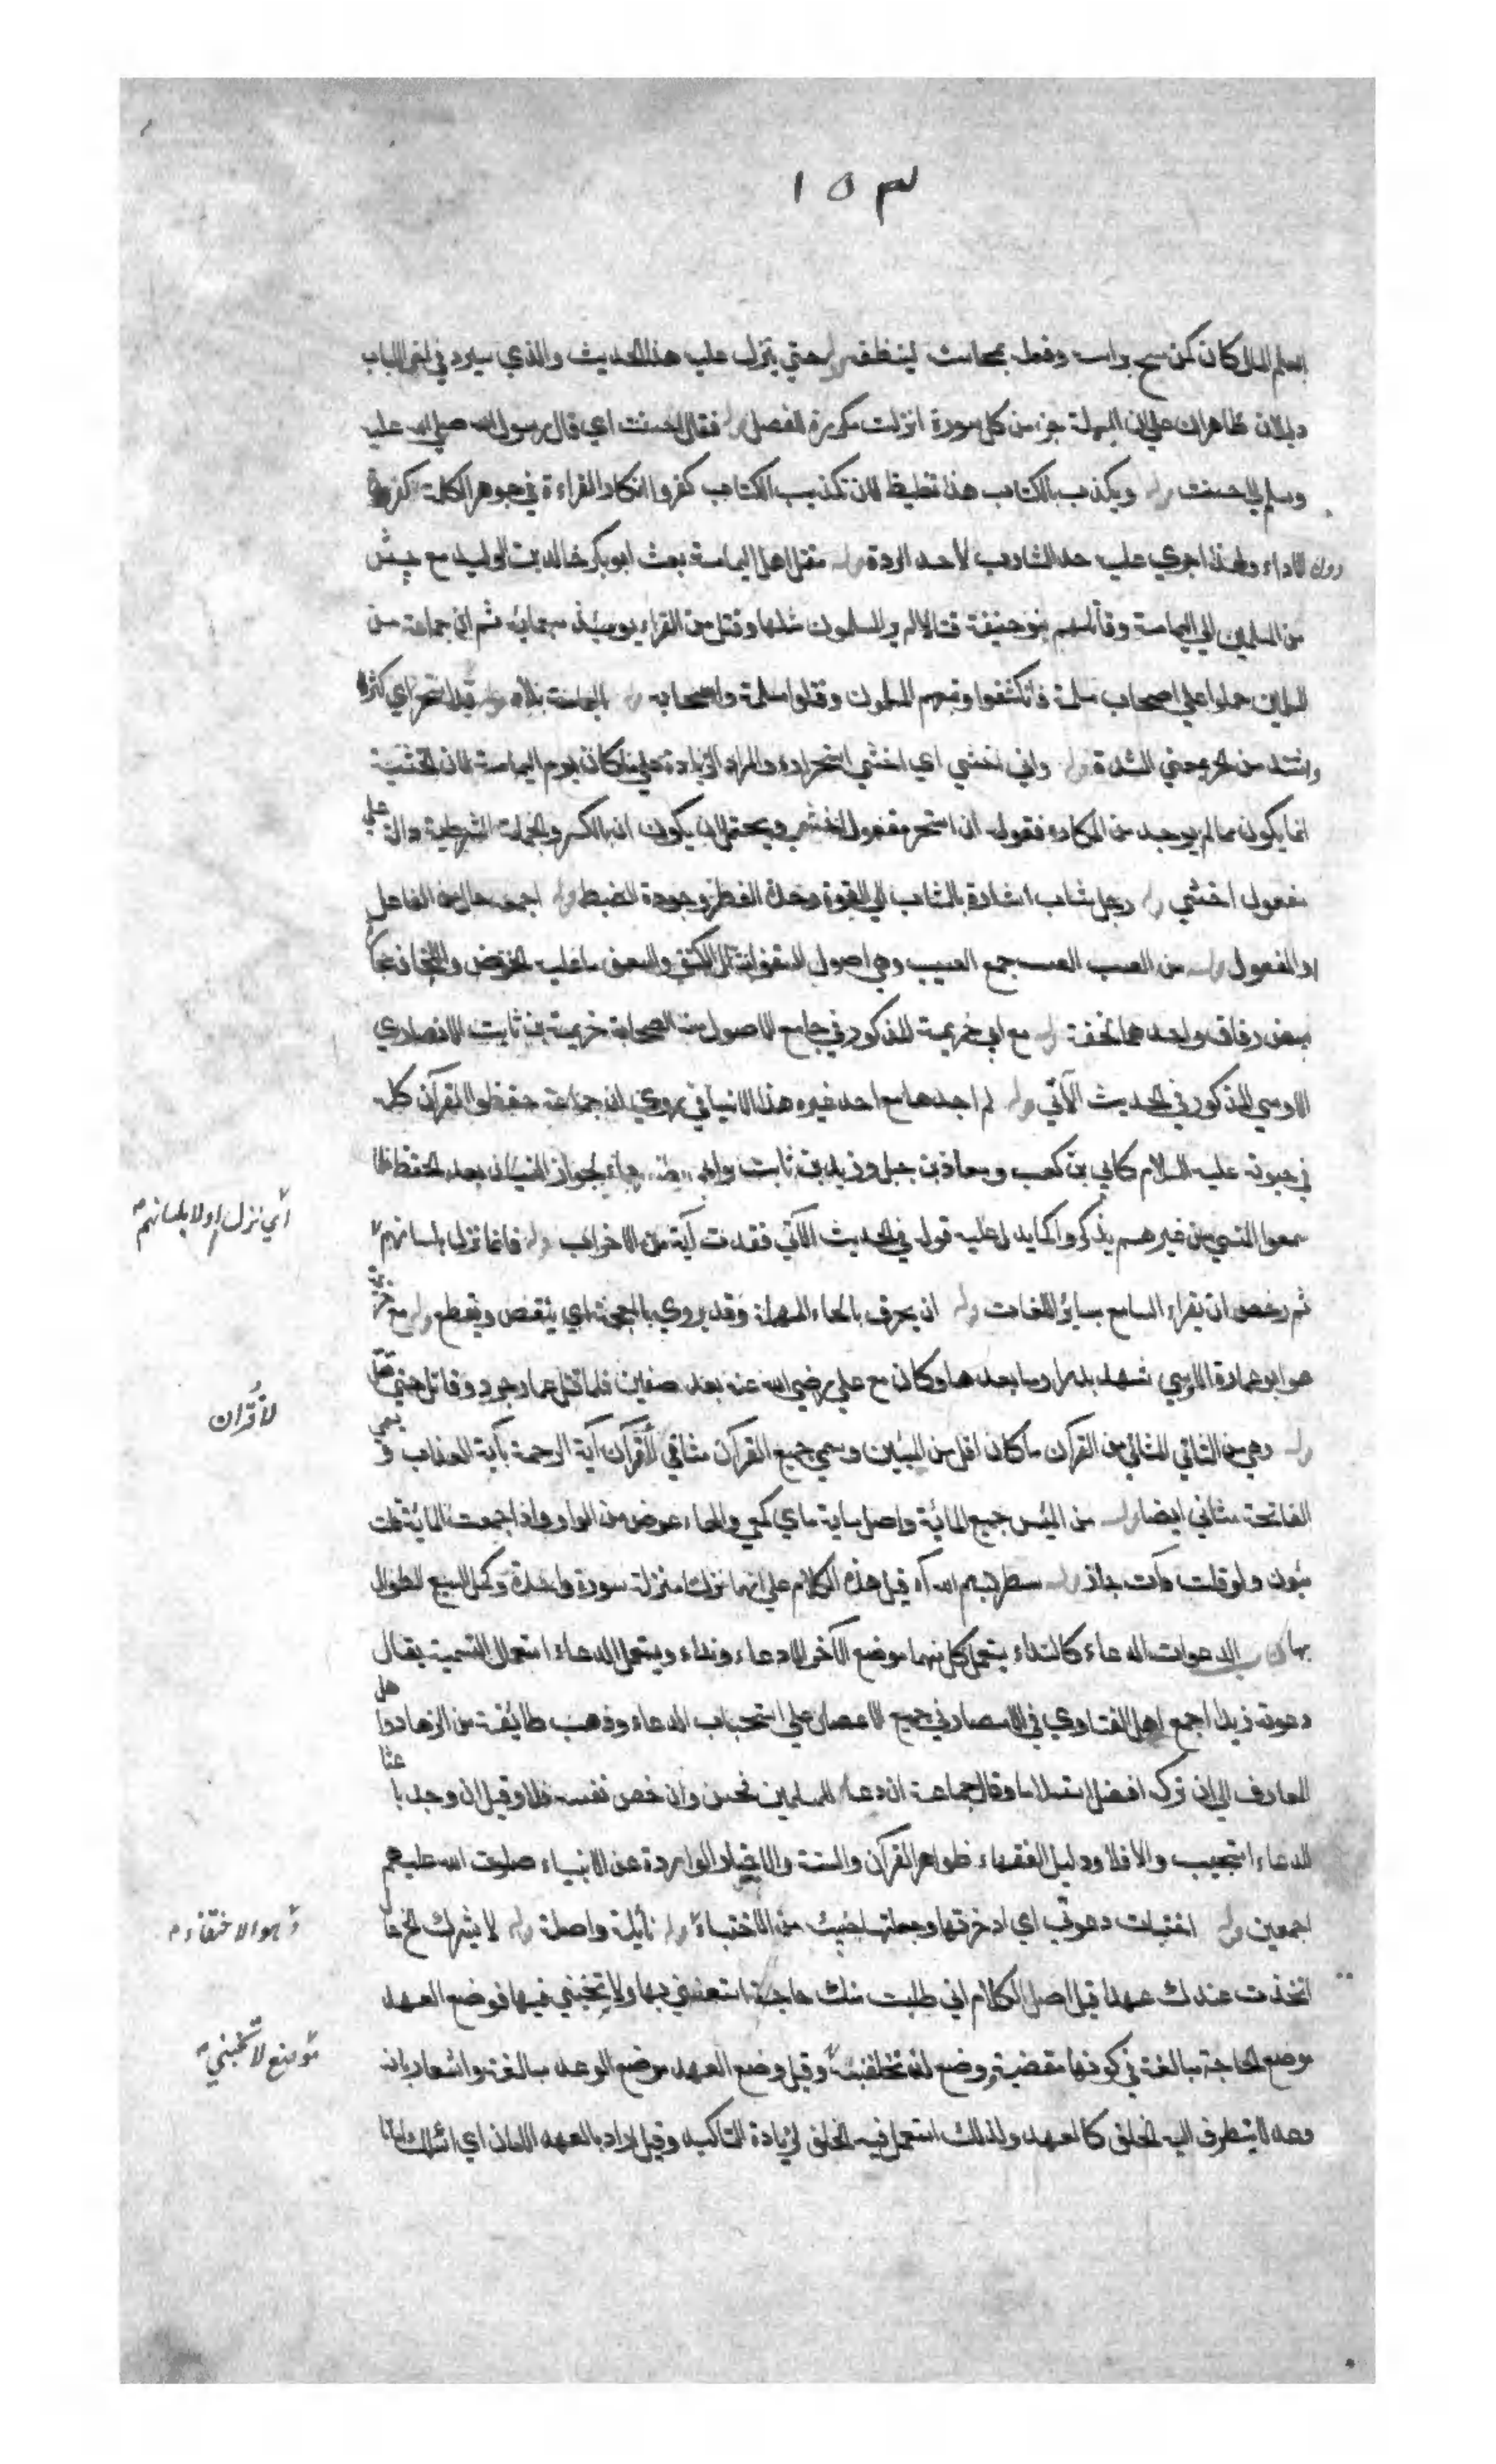 ١٥٣
وفعل به حتى ينزل عليه هذا الحديث والذي سيرد في
ظاهران على ان البسملة جزء من كل سورة انزلت مكررة للفصل قوله فقال احسنت اي قال رسول الله صلى الله عليه
وسلم لي احسنت قوله ويكذب بالكتاب هذا تغليظ لان تكذيب الكتاب كفر وانكار القراءة في جوهر الكلمة كفر
دون الاداء ولهذا اجري عليه حد الشارب لا حد الردة قوله مقتل اهل اليمامة بعث ابوبكر خالد بن الوليد مع جيش
من المسلمين الي اليمامة وقاتلهم بنو حنيفة قتالا لم ير المسلمون مثلها وقتل من القراء يومئذ سبعمائة ثم ان جماعة من
المسلمين حملوا علي اصحاب مسلمة فانكشفوا وتبعهم المسلمون وقتلوا مسلمة واصحابه قوله اليمامة بلاد قوله قد استحر اي كثر
واشتد من الحر بمعني الشدة قوله واني اخشي اي اخشي استحراره والمراد الزيادة علي ما كان يوم اليمامة لان الخشية
انما يكون مما لم يوجد من المكاره فقوله ان استحر مفعول اخشي ويحتمل ان يكون ان بالكسر والجملة الشرطية دالة علي
مفعول اخشي قوله رجل شاب اشارة بالشاب الي القوة وحدة الفطر وجودة الضبط قوله اجمعه حال من الفاعل
او المفعول قوله من العسب العسب جمع العسيب وهي اصول السعف والسعف ما عليه الخوص واللخاف
بيض رقاق واحدها لخفة قوله مع ابي خزيمة المذكور في جامع الاصول من الصحابة خزيمة بن ثابت الانصاري
الاوسي المذكور في الحديث الآتي قوله لم اجدها مع احد غيره هذا لا ينافي ما روي ان جماعة حفظوا القرآن كله
في حيوته عليه السلام كابي بن كعب ومعاذ بن جبل وزيد بن ثابت لجواز النسيان بعد الحفظ فلما
سمعوا من غيرهم تذكروا كما يدل عليه قوله في الحديث الآتي فقدت آية من الاحزاب قوله فانما نزل بلسانهم
اي نزل اولا بلسانهم
ثم رخص ان يقراء السامع بساير اللغات قوله ان يحرق بالحاء المهملة وقد يروي بالمعجمة اي ينقض ويقطع قوله مع
هو ابو عمارة الاوسي شهد بدرا وما بعدها وكان مع علي رضي الله عنه بعد صفين فلما قتل عمار جرد وقاتل حتي قتل
قوله وهي من المثاني المثاني من القرآن ما كان اقل من المئين وسمي جميع القرآن مثاني لاقران آية الرحمة بآية العذاب
لاقران
الفاتحة مثاني ايضا قوله من المئين جمع المائة واصل ماية ماي كمعي والهاء عوض من الواو واذا جمعت المائة قلت
مئون ولو قلت مآت جاز قوله سطر بسم الله آه قيل هذا الكلام علي انهما نزلتا منزلة سورة واحدة وكمل السبع الطول
بها كتاب الدعوات الدعاء كالنداء يستعمل كل منهما موضع الآخر دعاء ونداء ويستعمل الدعاء استعمال التسمية يقال
دعوته زيدا اجمع اهل الفتاوي في الامصار في جميع الاعصار علي استحباب الدعاء وذهب طائفة من الزهاد واهل
المعارف الي ان تركه افضل استسلاما وقال جماعة ان دعاء للمسلمين فحسن وان خص نفسه فلا وقيل ان وجد باعثا
للدعاء استحب والا فلا ودليل الفقهاء ظواهر القرآن والسنة والاخبار الواردة عن الانبياء صلوات الله عليهم
اجمعين قوله اختبات دعوتي اي ادخرتها وجعلتها من الاختباء قوله نائلة واصلة قوله لا يشرك
وهو الاختفاء
اتخذت عندك عهدا قيل اصل الكلام اني طلبت منك حاجة تسعفني بها ولا تخيبني فيها فوضع العهد
موضع الحاجة مبالغة في كونها مقضية ووضع لن تخلفنيه وقيل وضع العهد موضع الوعد مبالغة واشعارا بانه
موضع لا تخيبني
وعد لا يتطرق اليه الخلف كالعهد ولذلك استعمل فيه الخلف لزيادة التاكيد وقيل اراد بالعهد الامان اي اسئلك امانا